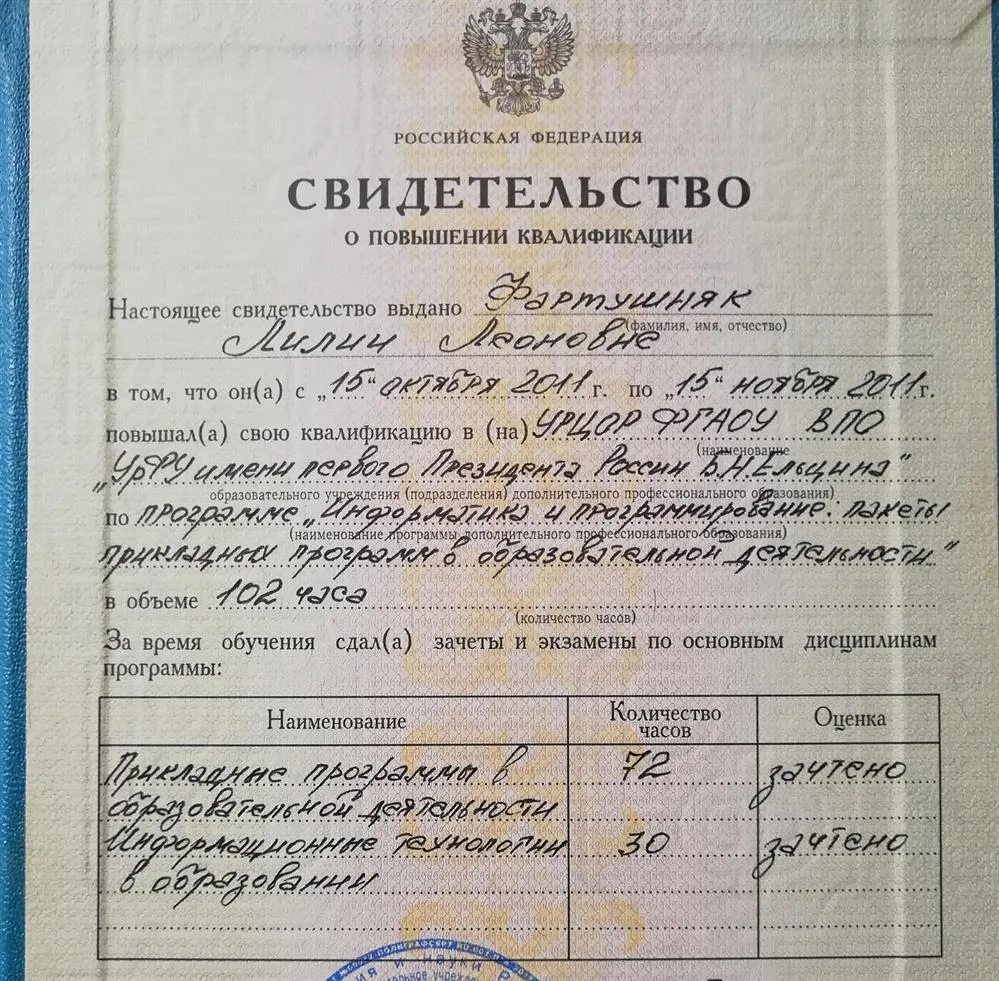 РОССИЙСКАЯ ФЕДЕРАЦИЯ
СВИДЕТЕЛЬСТВО
О ПОВЫШЕНИИ КВАЛИФИКАЦИИ
Настоящее свидетельство выдано Фартушняк
(фамилия, имя, отчество)
Лилии Леоновне
в том, что он(а) с „15“ октября 2011 г. по „15“ ноября 2011 г.
повышал(а) свою квалификацию в (на) УРЦОР ФГАОУ ВПО
(наименование
„УрФУ имени первого Президента России Б.Н.Ельцина"
образовательного учреждения (подразделения) дополнительного профессионального образования)
по программе „Информатика и программирование: пакеты
(наименование программы дополнительного профессионального образования)
прикладных программ в образовательной деятельности"
в объеме 102 часа
(количество часов)
За время обучения сдал(а) зачеты и экзамены по основным дисциплинам
программы:
Наименование Количество часов Оценка
Прикладные программы в 72 зачтено
образовательной деятельности
Информационные технологии 30 зачтено
в образовании